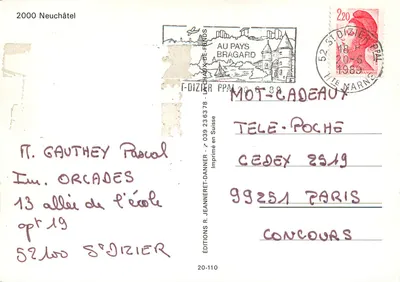 2000 Neuchâtel
AU PAYS
BRAGARD
2.20
52 ST DIZIER PPAL
18 H
20-5
1989
HTE MARNE
T-DIZIER PPAL
M. GAUTHEY Pascal
Im. ORCADES
13 allée de l'école
apt 19
52100 St DIZIER
EDITIONS R. JEANNERET-DANNER - ✆ 039 236378 - LA CHAUX-DE-FONDS
Imprimé en Suisse
20-110
MOT-CADEAUX
TELE-POCHE
CEDEX 2519
99251 PARIS
CONCOURS